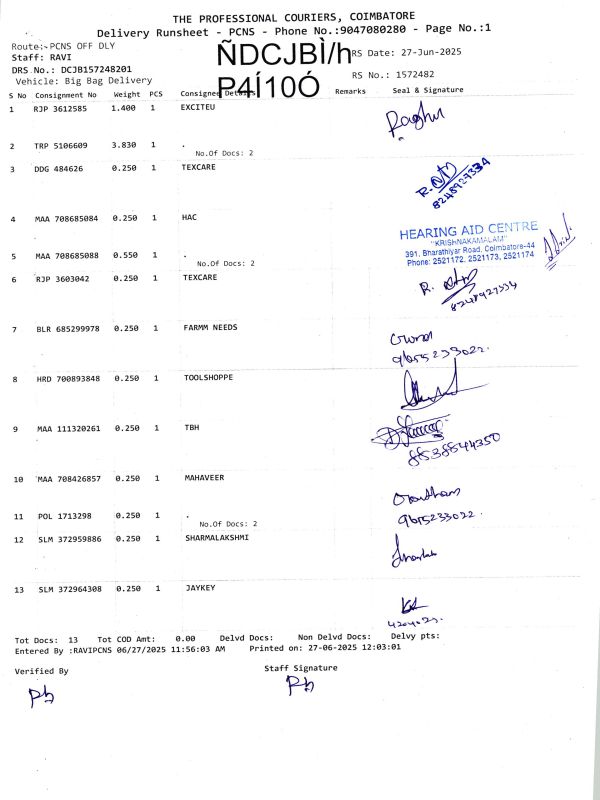 THE PROFESSIONAL COURIERS, COIMBATORE
Delivery Runsheet - PCNS - Phone No.:9047080280 - Page No.:1
Route:- PCNS OFF DLY
Staff: RAVI
ÑDCJBÌ/h
P4Í10Ó
RS Date: 27-Jun-2025
DRS No.: DCJB157248201
RS No.: 1572482
Vehicle: Big Bag Delivery
S No Consignment No Weight PCS Consignee Details Remarks Seal & Signature
1 RJP 3612585 1.400 1 EXCITEU
Raghu
2 TRP 5106609 3.830 1 .
No.Of Docs: 2
3 DDG 484626 0.250 1 TEXCARE
8248927334
4 MAA 708685084 0.250 1 HAC
HEARING AID CENTRE
"KRISHNAKAMALAM"
391, Bharathiyar Road, Coimbatore-44
Phone: 2521172, 2521173, 2521174
5 MAA 708685088 0.550 1 .
No.Of Docs: 2
6 RJP 3603042 0.250 1 TEXCARE
8248927334
7 BLR 685299978 0.250 1 FARMM NEEDS
9655233022.
8 HRD 700893848 0.250 1 TOOLSHOPPE
9 MAA 111320261 0.250 1 TBH
8838544350
10 MAA 708426857 0.250 1 MAHAVEER
9655233022.
11 POL 1713298 0.250 1 .
No.Of Docs: 2
12 SLM 372959886 0.250 1 SHARMALAKSHMI
13 SLM 372964308 0.250 1 JAYKEY
Tot Docs: 13 Tot COD Amt: 0.00 Delvd Docs: Non Delvd Docs: Delvy pts:
Entered By :RAVIPCNS 06/27/2025 11:56:03 AM Printed on: 27-06-2025 12:03:01
Verified By Staff Signature